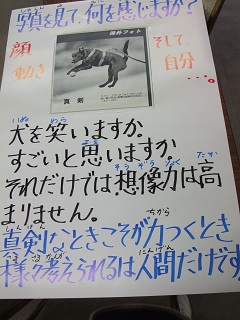 しゃしん　み　なに　かん
写真を見て、何を感じますか？
顔
動き
そして、
自分
...。
課外フォト
真剣
いぬ　わら
犬を笑いますか。
すごいと思いますか
そうぞうりょく　たか
それだけでは想像力は高
まりません。
しんけん　ちから
真剣なときこそ力がつくとき
さまざま　かんが　にんげん
様々考えられるは人間だけです